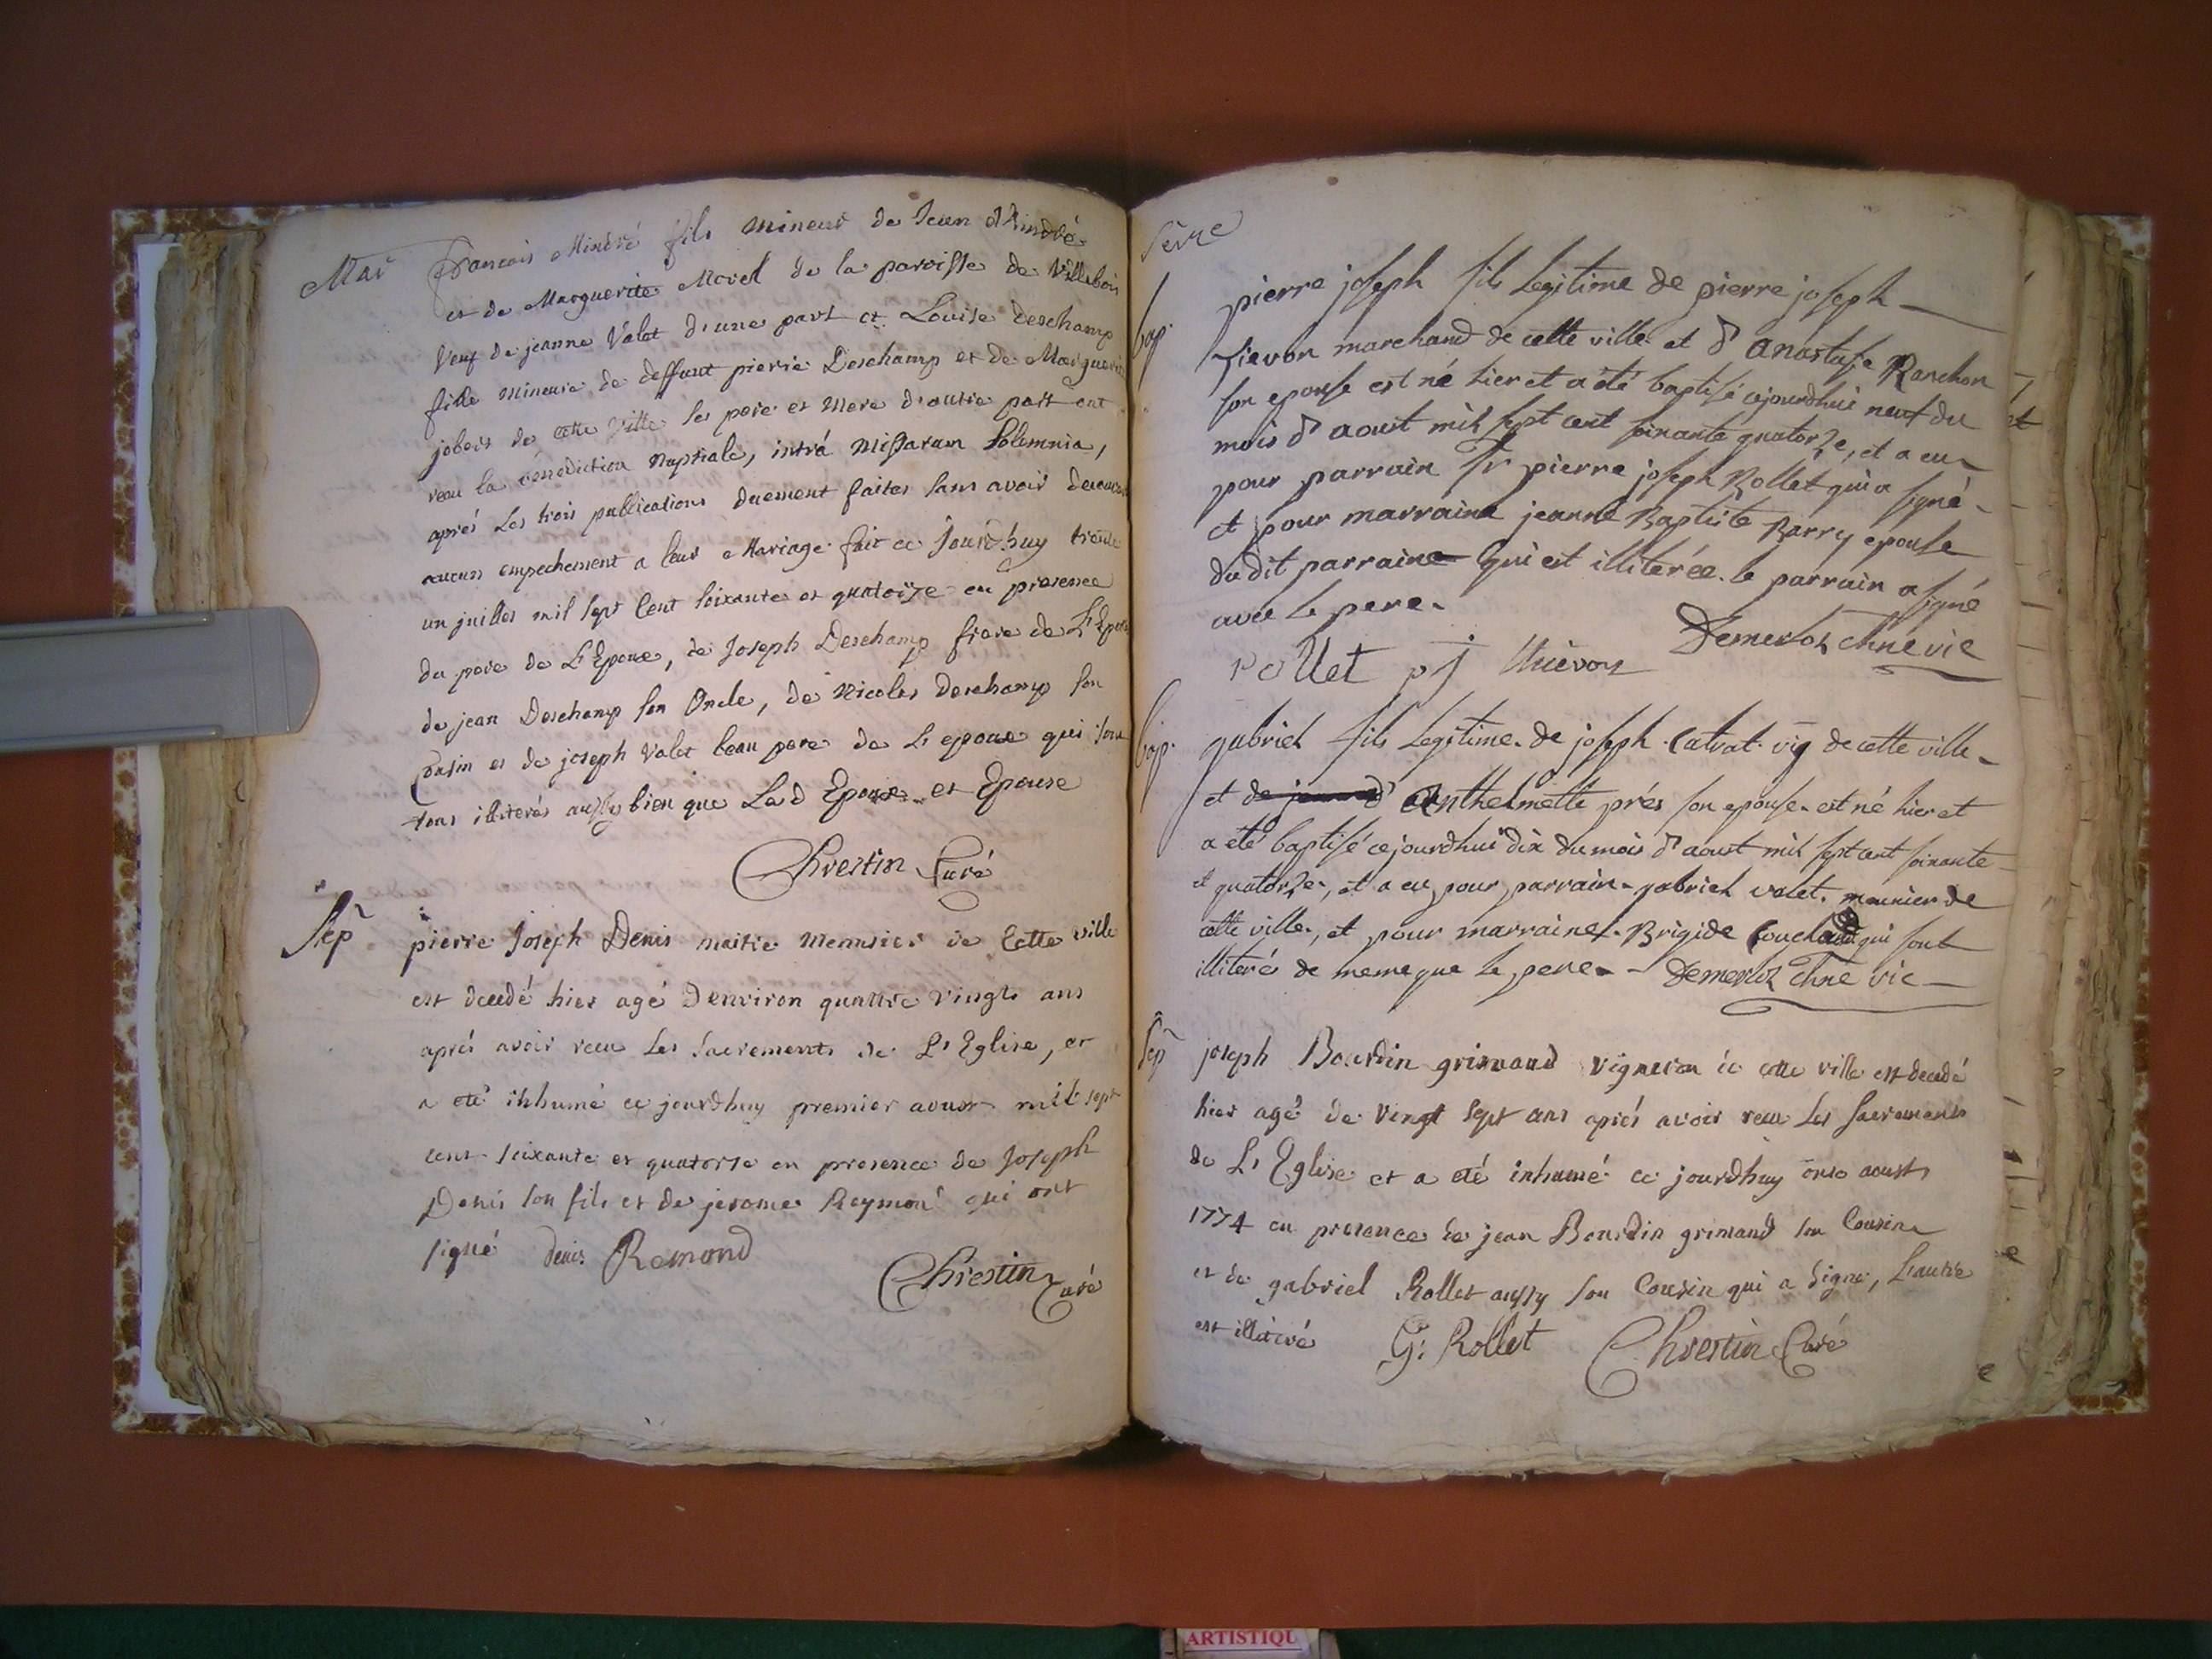 Mar francois André fils mineur de Jean André
et de Marguerite Morel de la paroisse de Villebois
Veuf de jeanne Valet d'une part et Louise Deschamp
fille mineure de deffunt pierre Deschamp et de Marguerite
jobert de cette Ville ses pere et Mere d'autre part ont
recu la benediction Nuptiale, intrá Missarum Solemnia,
aprés Les trois publications duement faites sans avoir decouvert
aucun empechement a leur Mariage fait ce Jourd'huy trente
un juillet mil sept Cent soixante et quatorze en presence
du pere de L'Epoux, de Joseph Deschamp frere de L'Epouse
de jean Deschamp son Oncle, de Nicolas Deschamp son
Cousin et de joseph Valet beau pere de L'epoux qui sont
tous illiterés aussy bien que Led Epoux et Epouse
Chrestin Curé
Sep pierre Joseph Denis maitre Menusier de Cette ville
est decedé hier agé Denviron quattre vingts ans
aprés avoir recu Les Sacrements de L'Eglise, et
a eté inhumé ce jourdhuy premier aoust mil sept
cent soixante et quatorse en presence de Joseph
Denis son fils et de jerome Reymond qui ont
signé Denis Remond
Chrestin Curé
bap. pierre joseph fils Legitime de pierre joseph
Tievon marchand de cette ville et d'anastasie Ranchon
son epouse est né hier et a été baptisé cejourdhui neuf du
mois d'aoust mil sept cent soixante quatorze, et a eu
pour parrain Sr pierre joseph Rollet qui a signé
et pour marraine jeanne Baptiste Barry epouse
dudit parraine qui est illiterée. le parrain a signé
avec le pere.
rollet pj thievon
bap. gabriel fils Legitime de joseph Calvat vig de cette ville
et d'Anthelmette prés son epouse est né hier et
a eté baptisé cejourdhui dix du mois d'aoust mil sept cent soixante
et quatorze, et a eu pour parrain gabriel valet meunier de
cette ville, et pour marraine Brigide qui sont
illiterés de meme que le pere
Sep joseph Bourdin grimaud vigneron de cette ville est decedé
hier agé de vingt sept ans aprés avoir recu Les Sacrements
de L'Eglise et a eté inhumé ce jourdhuy onse aoust
1774 en presence de jean Bourdin grimaud son Cousin
et de gabriel Rollet aussy son Cousin qui a signé, L'autre
est illiteré G: Rollet Chrestin Curé
ARTISTIQU